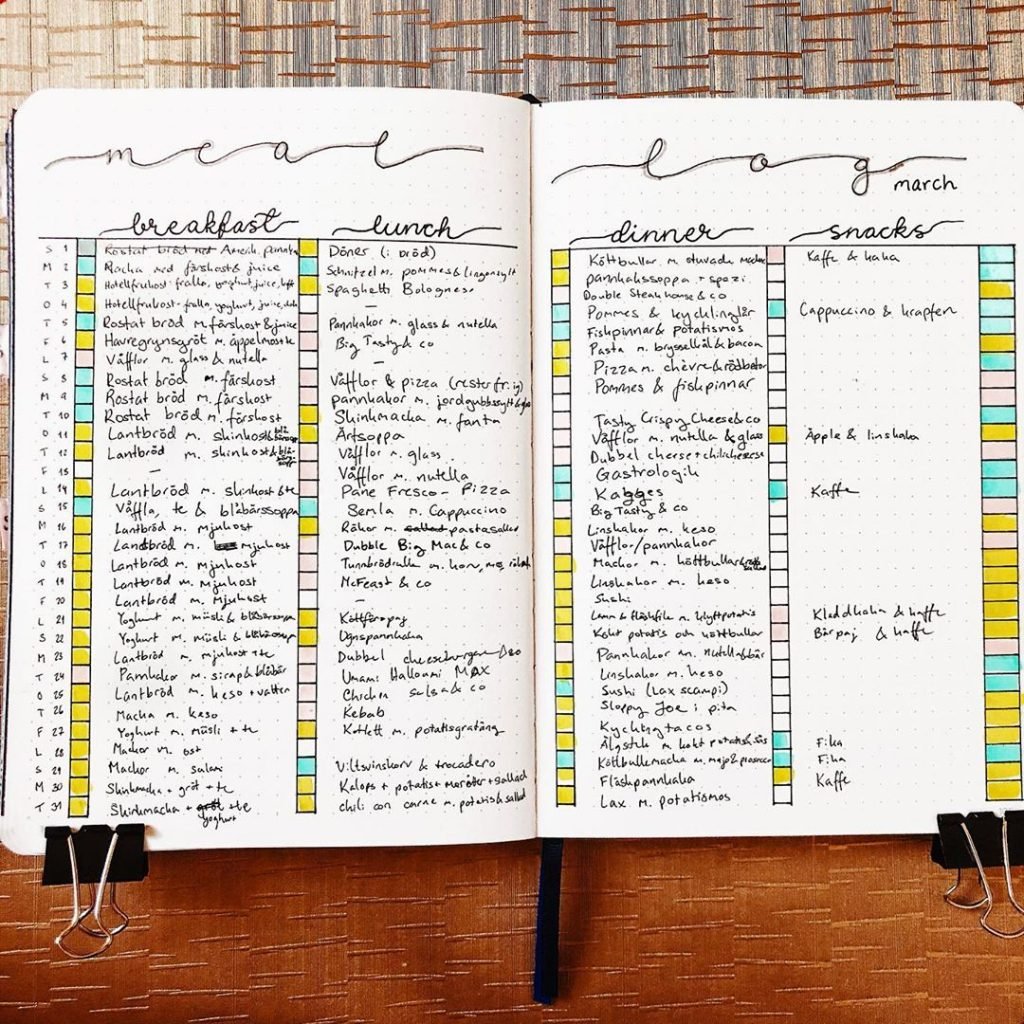 meal
log
march
breakfast lunch
dinner snacks
S 1 Rostat bröd med Amerik. pannk Döner (i bröd)
M 2 Macka med färskost & juice Schnitzel m. pommes & lingonsylt
T 3 Hotellfrukost - fralla, yoghurt, juice, Spaghetti Bolognese
O 4 Hotellfrukost - fralla, yoghurt, juice, —
T 5 Rostat bröd m. färskost & juice Pannkakor m. glass & nutella
F 6 Havregrynsgröt m. äppelmos + k Big Tasty & co
L 7 Våfflor m. glass & nutella —
S 8 Rostat bröd m. färskost Våfflor & pizza (rester fr. ig)
M 9 Rostat bröd m. färskost pannkakor m. jordgubbssylt &
T 10 Rostat bröd m. färskost Skinkmacka m. fanta
O 11 Lantbröd m. skinkost & Ärtsoppa
T 12 Lantbröd m. skinkost & Våfflor m. glass
F 13 — Våfflor m. nutella
L 14 Lantbröd m. skinkost & te Pane Fresco - Pizza
S 15 Våffla, te & blåbärssoppa Semla m. Cappuccino
M 16 Lantbröd m. mjukost Räkor m. sallad pastasallad
T 17 Lantbröd m. mjukost Dubble Big Mac & co
O 18 Lantbröd m. mjukost Tunnbrödrulle m. korv, mos,
T 19 Lantbröd m. mjukost McFeast & co
F 20 Lantbröd m. mjukost —
L 21 Yoghurt m. müsli & blåbärssoppa Köttfärspaj
S 22 Yoghurt m. müsli & blåbärssoppa Ugnspannkaka
M 23 Lantbröd m. mjukost + te Dubbel cheeseburgare & co
T 24 Pannkakor m. sirap & blåbär Umami Halloumi MAX
O 25 Lantbröd m. keso + vatten Chicken salsa & co
T 26 Macka m. keso Kebab
F 27 Yoghurt m. müsli + te Kotlett m. potatisgratäng
L 28 Mackor m. ost
S 29 Mackor m. salami Viltsvinskorv & trocadero
M 30 Skinkmacka + gröt + te Kalops + potatis + morötter + sallad
T 31 Skinkmacka + gröt + te Chili con carne m. potatis & sallad
yoghurt
Köttbullar m. stuvade makaroner Kaffe & kaka
pannkakssoppa + spazi
Double Steakhouse & co
Pommes & kycklinglår Cappuccino & krapfen
Fiskpinnar & potatismos
Pasta m. brysselkål & bacon
Pizza m. chèvre & rödbetor
Pommes & fiskpinnar
Tasty Crispy Cheese & co
Våfflor m. nutella & glass Äpple & linskaka
Dubbel cheese + chilicheese
Gastrologik
Kagges Kaffe
Big Tasty & co
Linskakor m. keso
Våfflor/pannkakor
Mackor m. köttbullar &
Linskakor m. keso
Sushi
m. klyftpotatis Kladdkaka & kaffe
Kokt potatis och köttbullar Bärpaj & kaffe
Pannkakor m. nutella & bär
Linskakor m. keso
Sushi (lax scampi)
Sloppy Joe i pita
Kycklingtacos
Älgstek m. kokt potatis & sås Fika
Köttbullemacka m. majo & prosecco Fika
Fläskpannkaka Kaffe
Lax m. potatismos